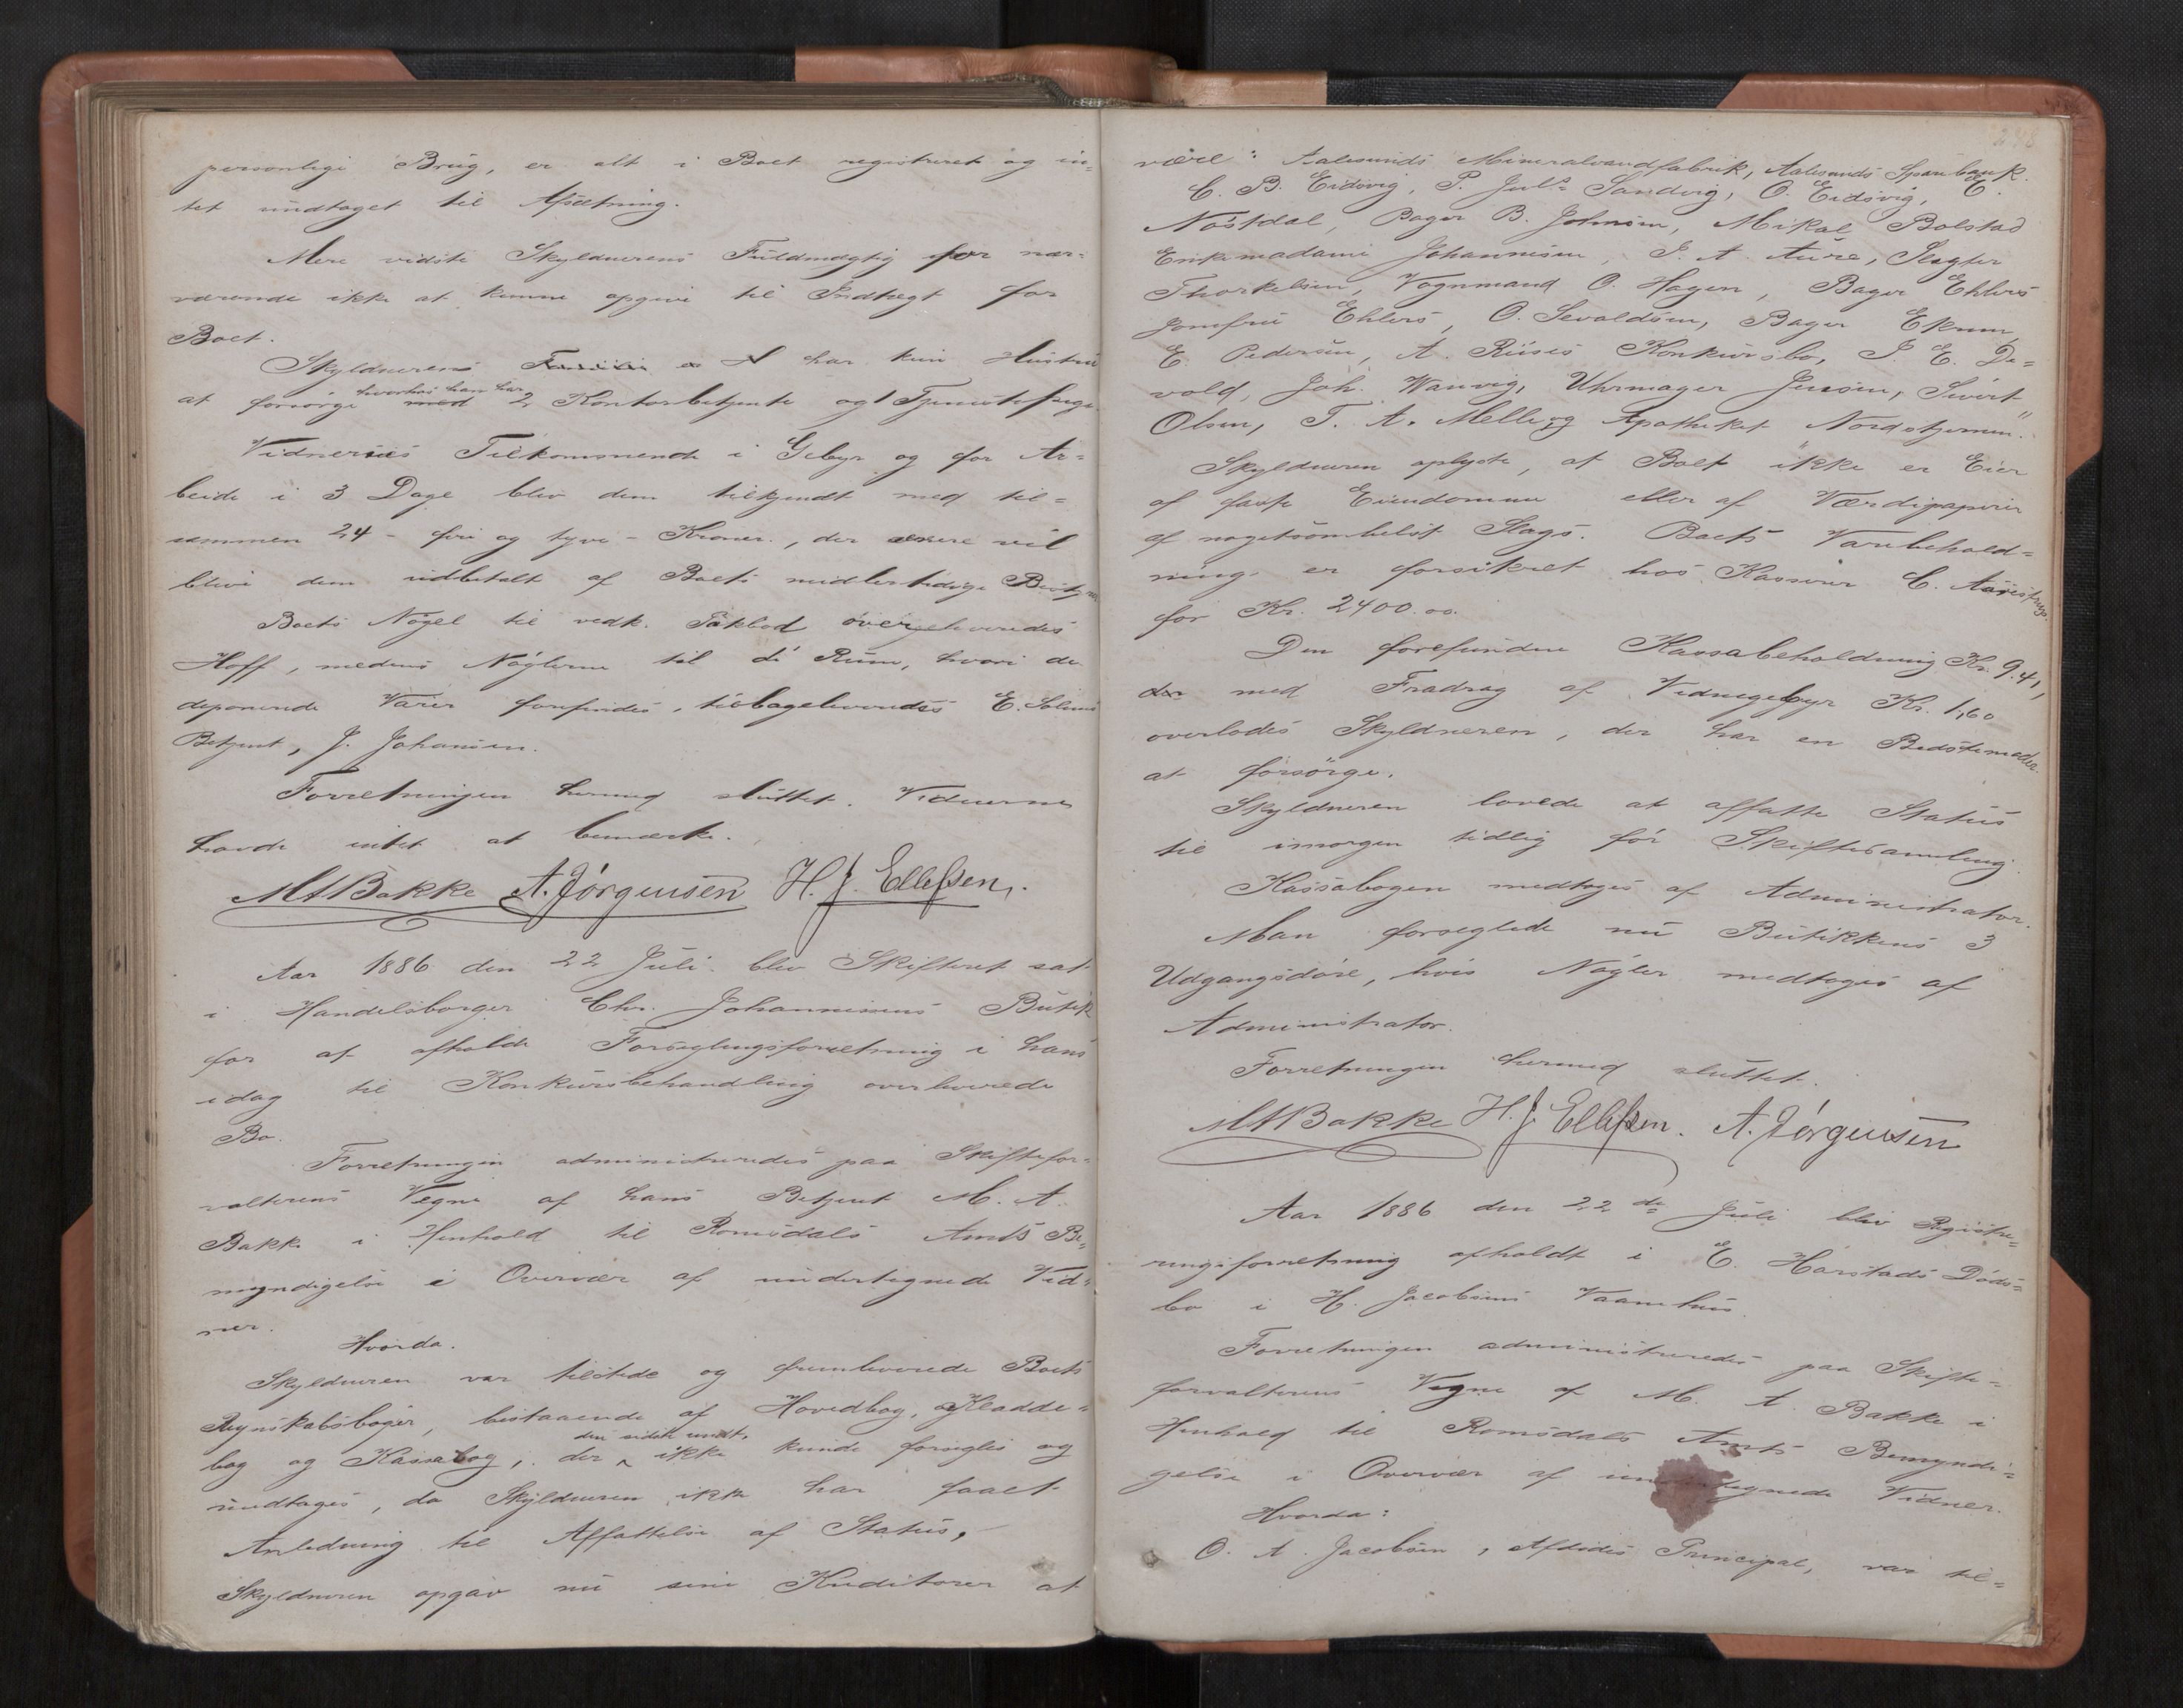 personlige Brug, er alt i Boet registreret og in-
tet undtaget til Afsætning.
Mere vidste Skyldnerens Fuldmægtig for nær-
værende ikke at kunne opgive til Indtægt for
Boet.
Skyldnerens har kun Hustru
hvorhos han har
at forsørge med 2 Kontorbetjente og 1 Tjenestepige.
Vidnernes Tilkommende i Gebyr og for Ar-
beide i 3 Dage blev dem tilkjendt med til-
sammen 24 - fire og tyve - Kroner., der senere vil
blive dem udbetalt af Boets midlertidige Bestyrer
Boets Nøgel til vedk. Pakbod overleveredes
Hoff, medens Nøglerne til de Rum, hvori de
deponerede Varer forefindes, tilbageleveredes E. Solems
Betjent, J. Johansen.
Forretningen hermed sluttet. Vidnerne
havde intet at bemærke.
MABakke A. Jørgensen H. J. Ellefsen.
Aar 1886 den 22 Juli blev Skifteret sat
i Handelsborger Chr. Johannesens Butik
for at afholde Forseglingsforretning i hans
idag til Konkursbehandling overleverede
Bo.
Forretningen administreredes paa Skiftefor-
valterens Vegne af hans Betjent M. A.
Bakke i Henhold til Romsdals Amts Be-
myndigelse i Overvær af undertegnede Vid-
ner.
Hvorda.
Skyldneren var tilstede og fremleverede Boets
Regnskabsbøger, bestaaende af Hovedbog, Kladde-
den sidste undt.
bog og Kassabog, der ikke kunde forsegles og
undtages, da Skyldneren ikke har faaet
Anledning til Affattelse af Status,
Skyldneren opgav nu sine Kreditorer at
være: Aalesunds Mineralvandfabrik, Aalesunds Sparebank.
C. B. Eidsvig, P. Juls Sandvig, O. Eidsvig, E.
Nøstdal, Bager B. Johnsen, Mikal Bolstad
Enkemadame Johannesen, J. A Aure, Slagter
Thorkelsen, Vognmand O. Hagen, Bager Ehlers
Jomfru Ehlers, O. Sevaldsen, Bager Ekrem,
E. Pedersen, A. Riises Konkursbo, J. E. De-
vold, Joh. Wanvig, Uhrmager Jensen, Sivert
Olsen, T. A. Melle, og Apotheket "Nordstjernen".
Skyldneren oplyste, at Boet ikke er Eier
af faste Eiendomme eller af Værdipapirer
af nogetsomhelst Slags. Boets Varebehold-
ning er forsikret hos Kasserer C. Aarestrup
for Kr. 2400.00.
Den forefundne Kassabeholdning Kr. 9.41,
der med Fradrag af Vidnegebyr Kr. 1,60
overlodes Skyldneren, der har en Bedstemoder
at forsørge.
Skyldneren lovede at affatte Status
til imorgen tidlig før Skiftesamling.
Kassabogen medtoges af Administrator.
Man forseglede nu Butikkens 3
Udgangsdøre, hvis Nøgler medtoges af
Administrator.
Forretningen hermed sluttet.
MABakke H. J. Ellefsen. A. Jørgensen
Aar 1886 den 22de Juli blev Registre-
ringsforretning afholdt i E. Harstads Døds-
bo i H. Jacobsens Vaanehus.
Forretningen administreredes paa Skifte-
forvalterens Vegne af M. A. Bakke i
Henhold til Romsdals Amts Bemyndi-
gelse i Overvær af undertegnede Vidner.
Hvorda:
O. A. Jacobsen, Afdødes Principal, var til-